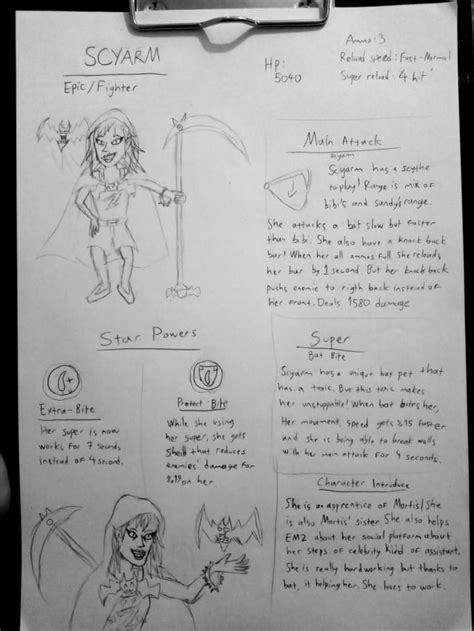 SCYARM
Epic/Fighter
Hp:
5040
Ammo: 3
Reload speed: Fast-Normal
Super reload: 4 hit
Main Attack
Scyarm
Scyarm has a scythe
to play! Range is mix of
bibi's and sandy's range.
She attacks a bit slow but faster
than bibi. She also have a knock back
bar! When her all ammos full. She reloads
her bar by 1 second. But her knock back
push enemie to rigth back instead of
her front. Deals 1580 damage
Star Powers
Extra-Bite
Her super is now
works for 7 seconds
instead of 4 second.
Protect-Bite
While she using
her super, she gets
Shell that reduces
enemies' damage for
on her.
Super
Bat Bite
Scyarm has a unique bat pet that
has a toxic. But this toxic makes
her unstoppable! When bat bites her,
Her movement speed gets %15 faster
and she is being able to break walls
with her main attack for 4 seconds.
Character Introduce
She is an apprentice of Mortis! She
is also Mortis' sister. She also helps
EMZ about her social platform about
her steps of celebrity kind of assistant.
She is really hardworking but thanks to
bat, it helping her. She loves to work.